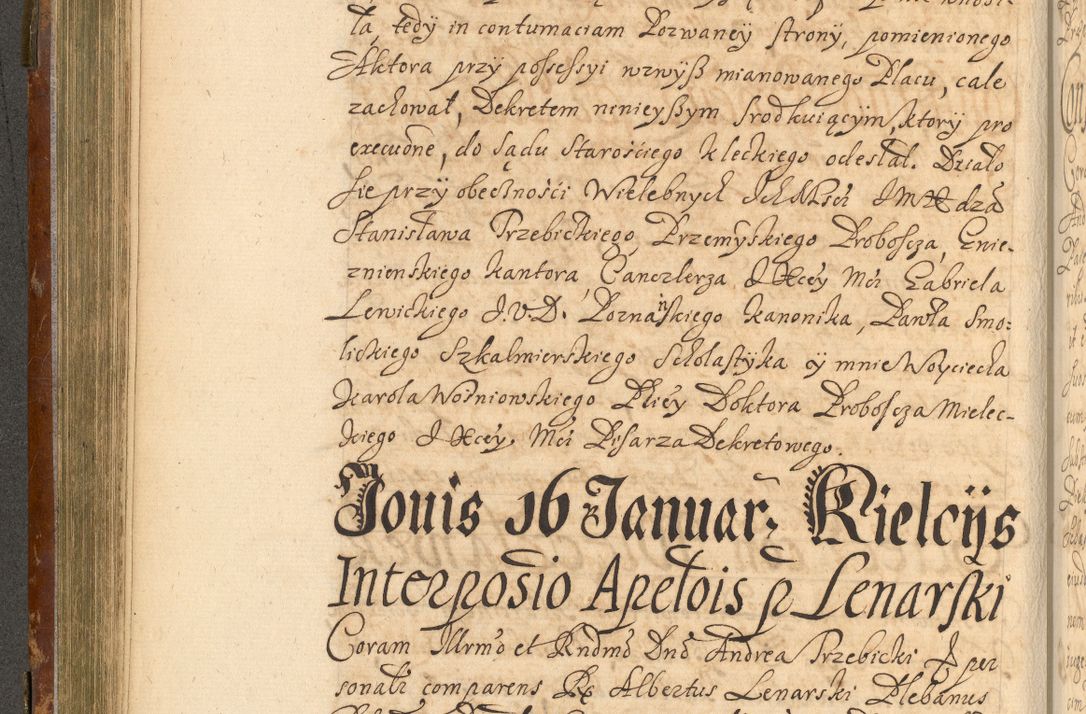 ta, tedy in contumaciam Pozwaney strony, pomienionego
Aktora przy possessyi wzwyß mianowanego Placu, cale
zachował, Dekretem ninieyßym srodkuiącym, ktory pro
execuõne, do sądu Starośćiego kleckiego odesłał. Działo
sie przy obecności Wielebnych Ich Mści
Stanisława Trzebickiego, Przemyskiego Proboscza, Gnie-
znienskiego kantora, Canczlerza J Xcey Mci Gabriela
Lewickiego J.V.D. Poznaińskiego kanonika, Pawła Smo-
lickiego Szkalmierskiego Scholastyka y mnie Woyciecha
Karola Woźniowskiego Plicy Doktora Proboscza Mielec-
kiego J Xcey Mci Pisarza Dekretowego.
Jouis 16 Januar: Kielcijs
Interposio Apełõis p Lenarski
Coram Illrmõ et Rndmõ Dnõ Andrea Trzebicki per
sonalr comparens Albertus Lenarski Plebanus